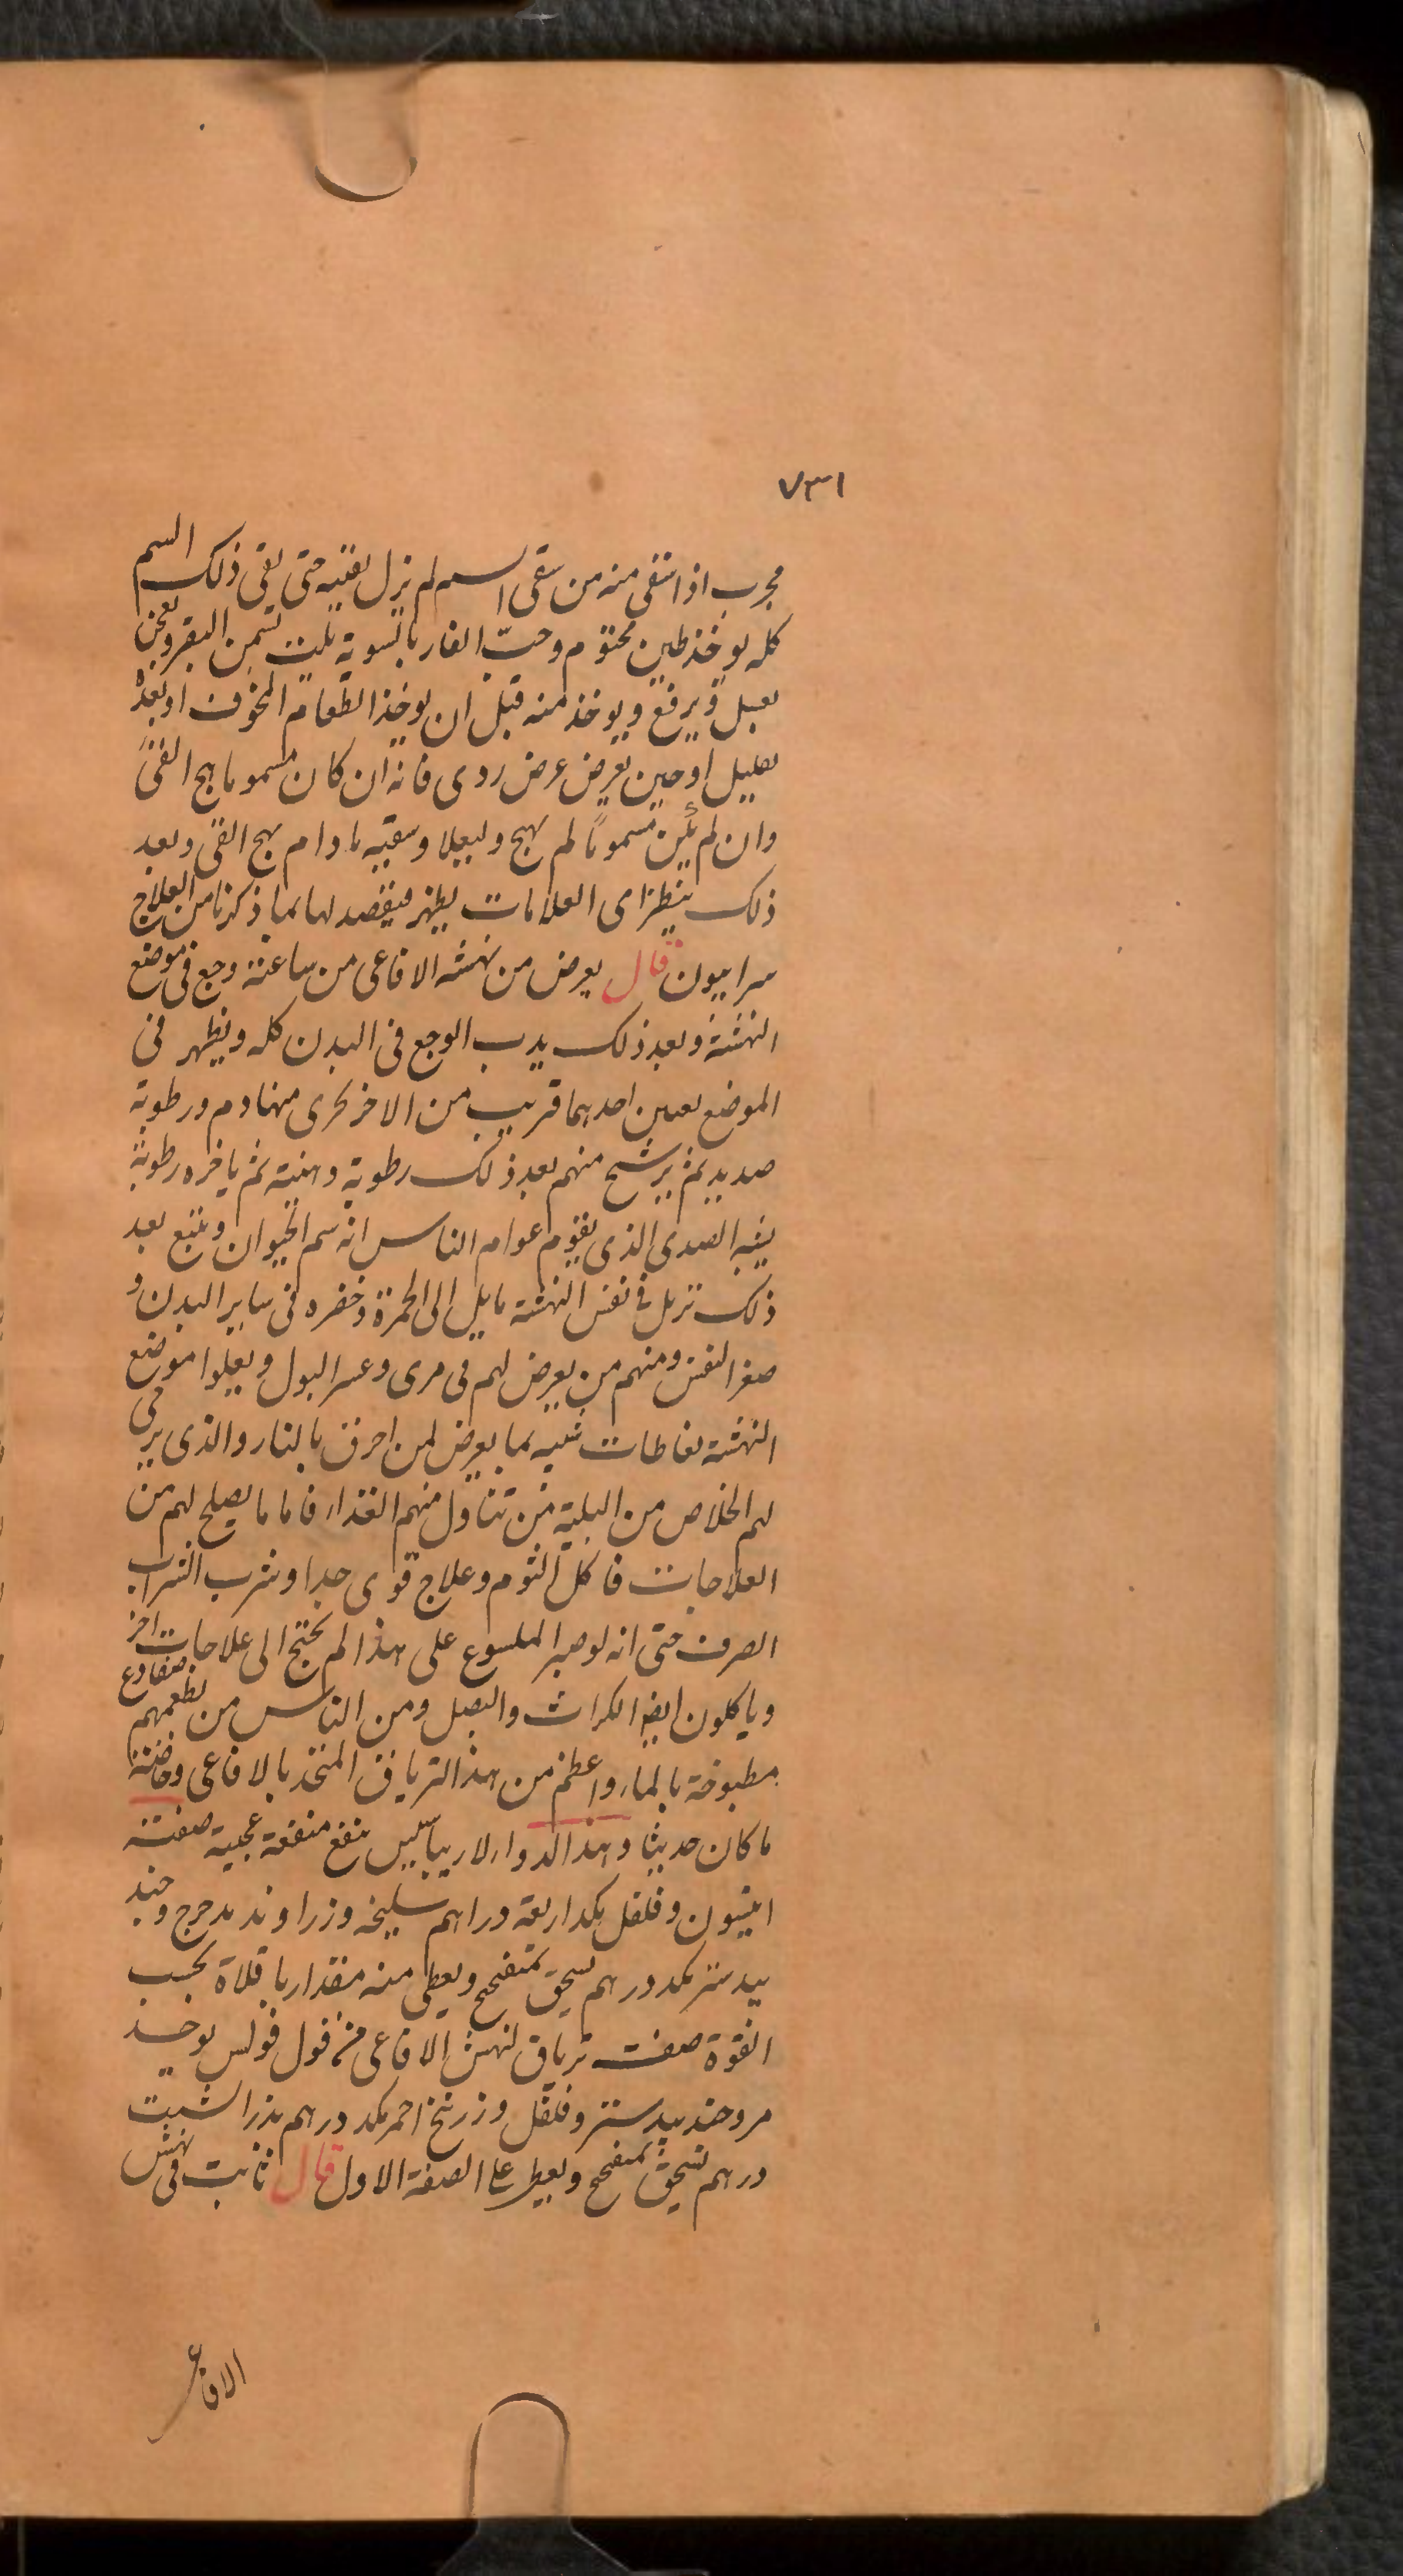 ٧٣١
مجرب اذا سقى منه من سقى السم لم يزل يقئيه حتى يقى ذلك السم
كله يوخذ طين مختوم وحب الغار بالسوية يلت بسمن البقر ويعجن
بعسل ويرفع ويوخذ منه قبل ان يوخذ الطعام المخوف او بعده
بقليل او حين يعرض عرض ردى فانه ان كان مسموما هج القى
وان لم يكن مسموما لم يهج وسقيه مادام يهج القى وبعد
ذلك ينظر اى العلامات يظهر فيقصد لها بما ذكرنا من العلاج
سرابيون قال يعرض من نهشه الافاعى من ساعته وجع فى موضع
النهشة وبعد ذلك يدب الوجع فى البدن كله ويظهر فى
الموضع احدهما قريب من الاخر يجرى منها دم ورطوبة
صديد ثم يرشح منهم بعد ذلك رطوبة دهنية ثم ياخره رطوبة
يشبه الصدى الذى يقوم عوام الناس انه سم الحيوان ويتبع بعد
ذلك تربل فى نفس النهشة مايل الى الحمرة وخضره فى ساير البدن و
صغر النفس ومنهم من يعرض لهم فى مرى وعسر البول ويعلوا موضع
النهشة نفاطات شبيه بما يعرض لمن احرق بالنار والذى يرجى
لهم الخلاص من البلية من تناول منهم الغذاء فاما ما يصلح لهم من
العلاجات فاكل الثوم وعلاج قوى جدا وشرب الشراب
الصرف حتى انه لو صبر الملسوع على هذا لم يحتج الى علاجات اخر
وياكلون ايضا الكراث والبصل ومن الناس من يطعمهم ضفادع
مطبوخة بالماء واعظم من هذا الترياق المتخذ بالافاعى وخاصة
ما كان حديثا وهذا الدواء لارياسيس ينفع منفعة عجيبة صفته
انيسون وفلفل يكد اربعة دراهم سليخه وزراوند مدحرج وجند
بيدستر يكد درهم يسحق بمتفختج ويعطى منه مقدار باقلاة بحسب
القوة صفت ترياق لنهش الافاعى من قول فولس يوخذ
مر وجند بيدستر وفلفل وزرنيخ احمر يكد درهم بذر الشبت
درهم يسحق بمتفختج ويعطى على الصفة الاول قال ثابت فى نهش
الافاعى